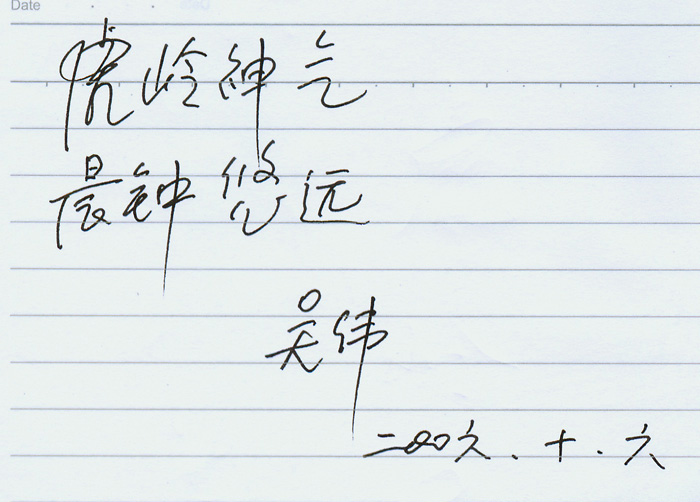 Date
虎岭绅气
晨钟悠远
吴伟
二〇〇六.十.六